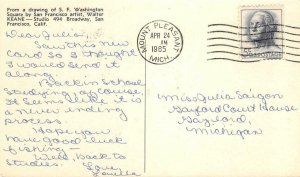 From a drawing of S. F. Washington
Square by San Francisco artist, Walter
KEANE — Studio 494 Broadway, San
Francisco, Calif.
Dear Julia,
Saw this new
card so I thought
I would send it
along.
Back in school
studying of course.
It seems like it is
a never ending
process.
Hope you
have good luck
fishing —
Well, back to
studies.
Love
MOUNT PLEASANT
MICH.
APR 24
PM
1965
5c
Miss Julia
Gaylord Court House
Gaylord,
Michigan